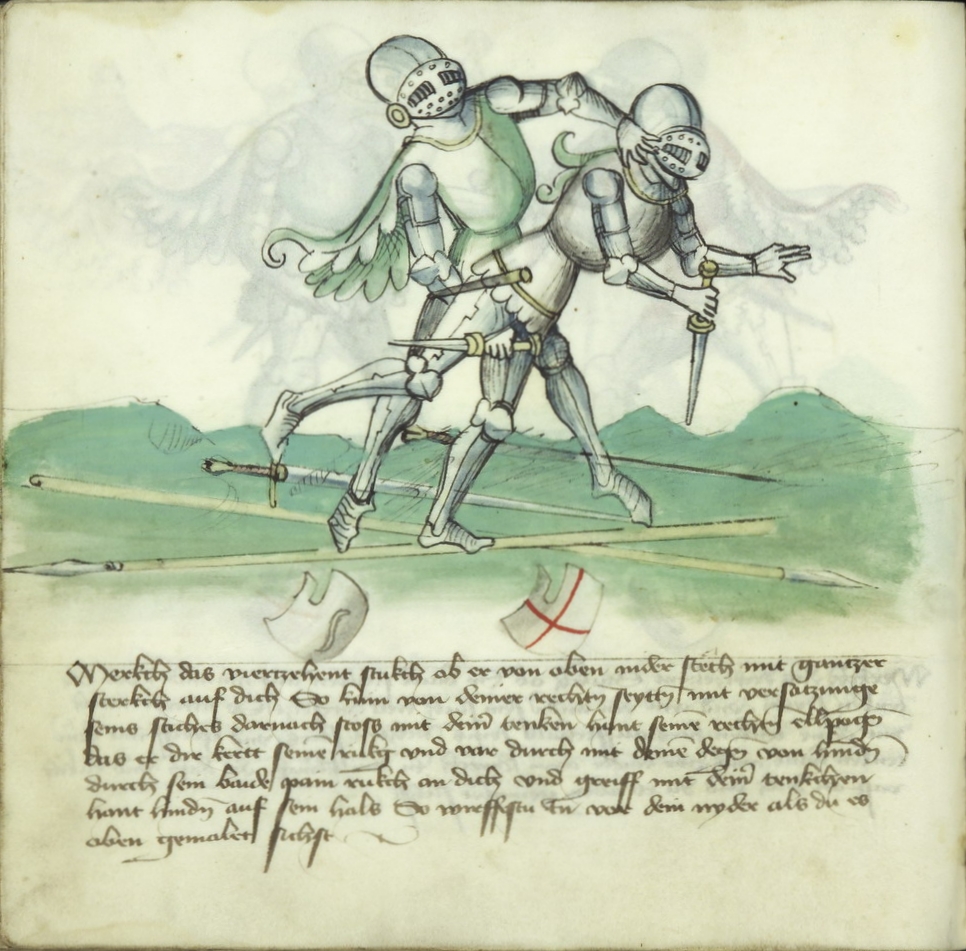 Merckch das vierczehent stukch ob er von oben nider stech mit gantzer
sterkch auf dich So kum von deiner rechtn̄ seyttn̄ mit versatzunge
seins stiches darnach stoss mit deim̄ tenken hant seinē rechtn̄ ellpogn̄
das er dir kertt seinē rukg vnd var durch mit deinē degn̄ von hindn̄
durch sein baide pain rukch an dich vnd greiff mit deim̄ tenkchen
hant hindn̄ auf sein hals So wirffestu In vor dein nyder als du es
oben gemalet sichst